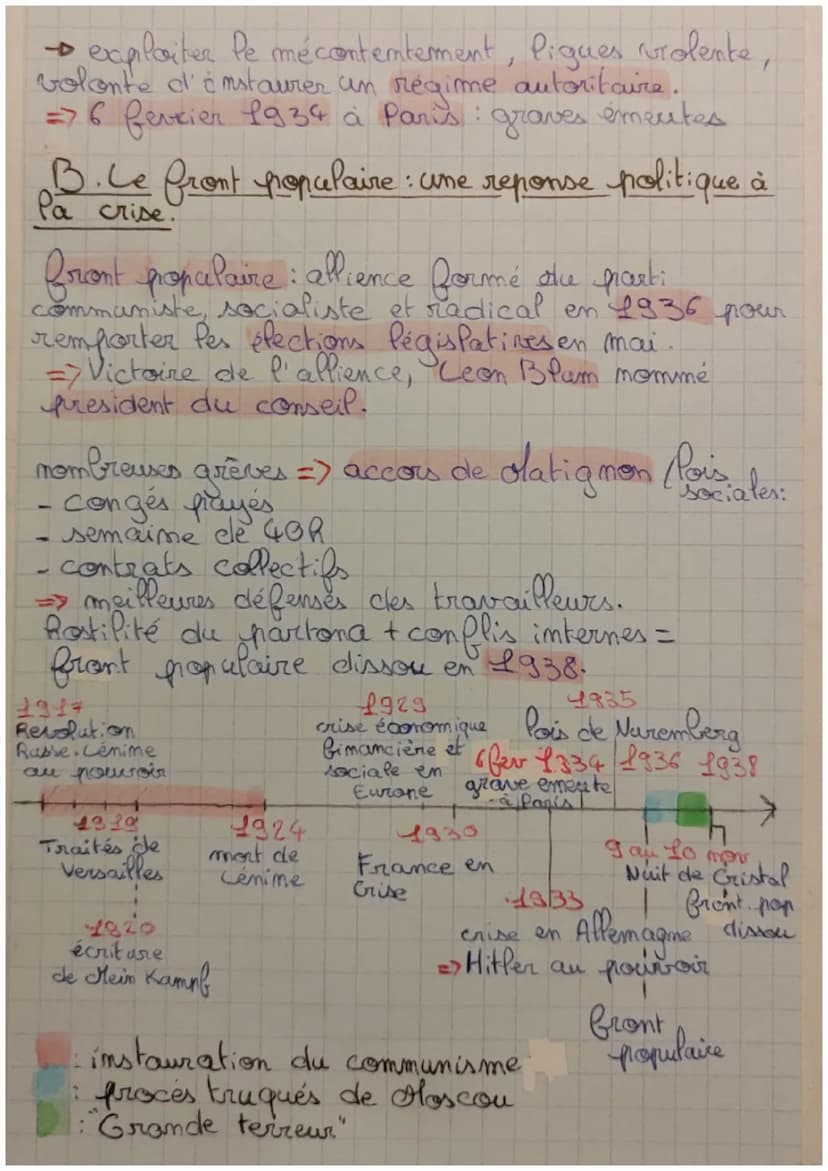 → exploiter le mécontentement, ligues violente,
volonte d'instaurer un régime autoritaire.
=> 6 fevrier 1934 à Paris : graves émeutes
B. Le front populaire : une reponse politique à
la crise.
front populaire : allience formé du parti
communiste, socialiste et radical en 1936 pour
remporter les élections législatives en mai.
=> Victoire de l'allience, Leon Blum nommé
président du conseil.
nombreuses grèves => accors de Matignon (lois
sociales:
- congés payés
- semaine de 40h
- contrats collectifs
=> meilleures défenses des travailleurs.
hostilité du partona + conflis internes =
front populaire dissou en 1938.
1917
Revolution
Russe. Lénime
au pouvoir
1929
crise économique
fimancière et
sociale en
Europe
1935
lois de Nuremberg
6 fev 1934
grave emeute
à Paris
1936 1938
1919
Traités de
Versailles
1924
mort de
Lénime
1930
France en
Crise
9 au 10 nov
Nuit de Cristal
front pop
dissou
1933
crise en Allemagne
=> Hitler au pouvoir
1920
écriture
de Mein Kampf
front
populaire
: instauration du communisme
: procès truqués de Moscou
: "Grande terreur"